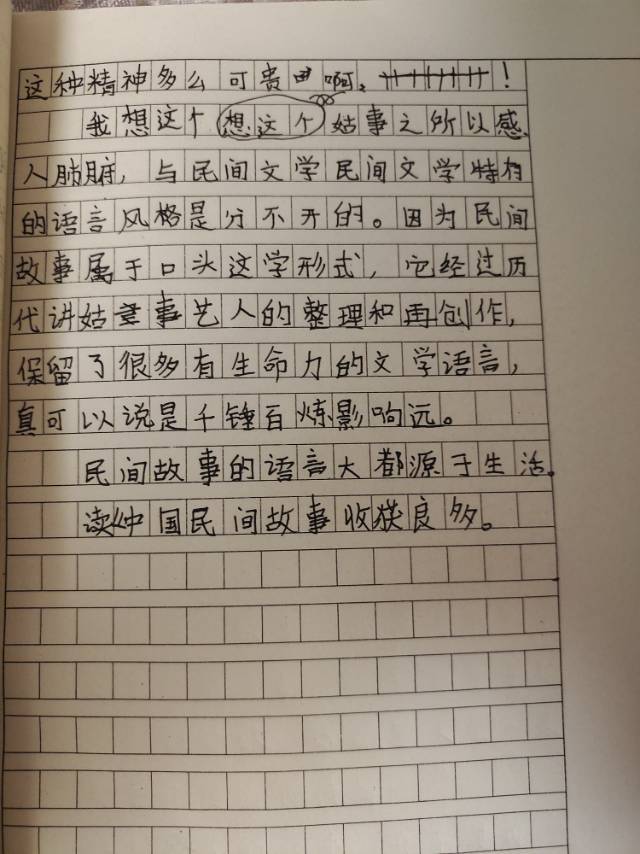 这种精神多么可贵啊,!
我想这个想这个姑事之所以感
人肺腑,与民间文学民间文学特有
的语言风格是分不开的。因为民间
故事属于口头这学形式,它经过历
代讲姑事艺人的整理和再创作,
保留了很多有生命力的文学语言,
真可以说是千锤百炼影响远。
民间故事的语言大都源于生活。
读《中国民间故事收获良多。